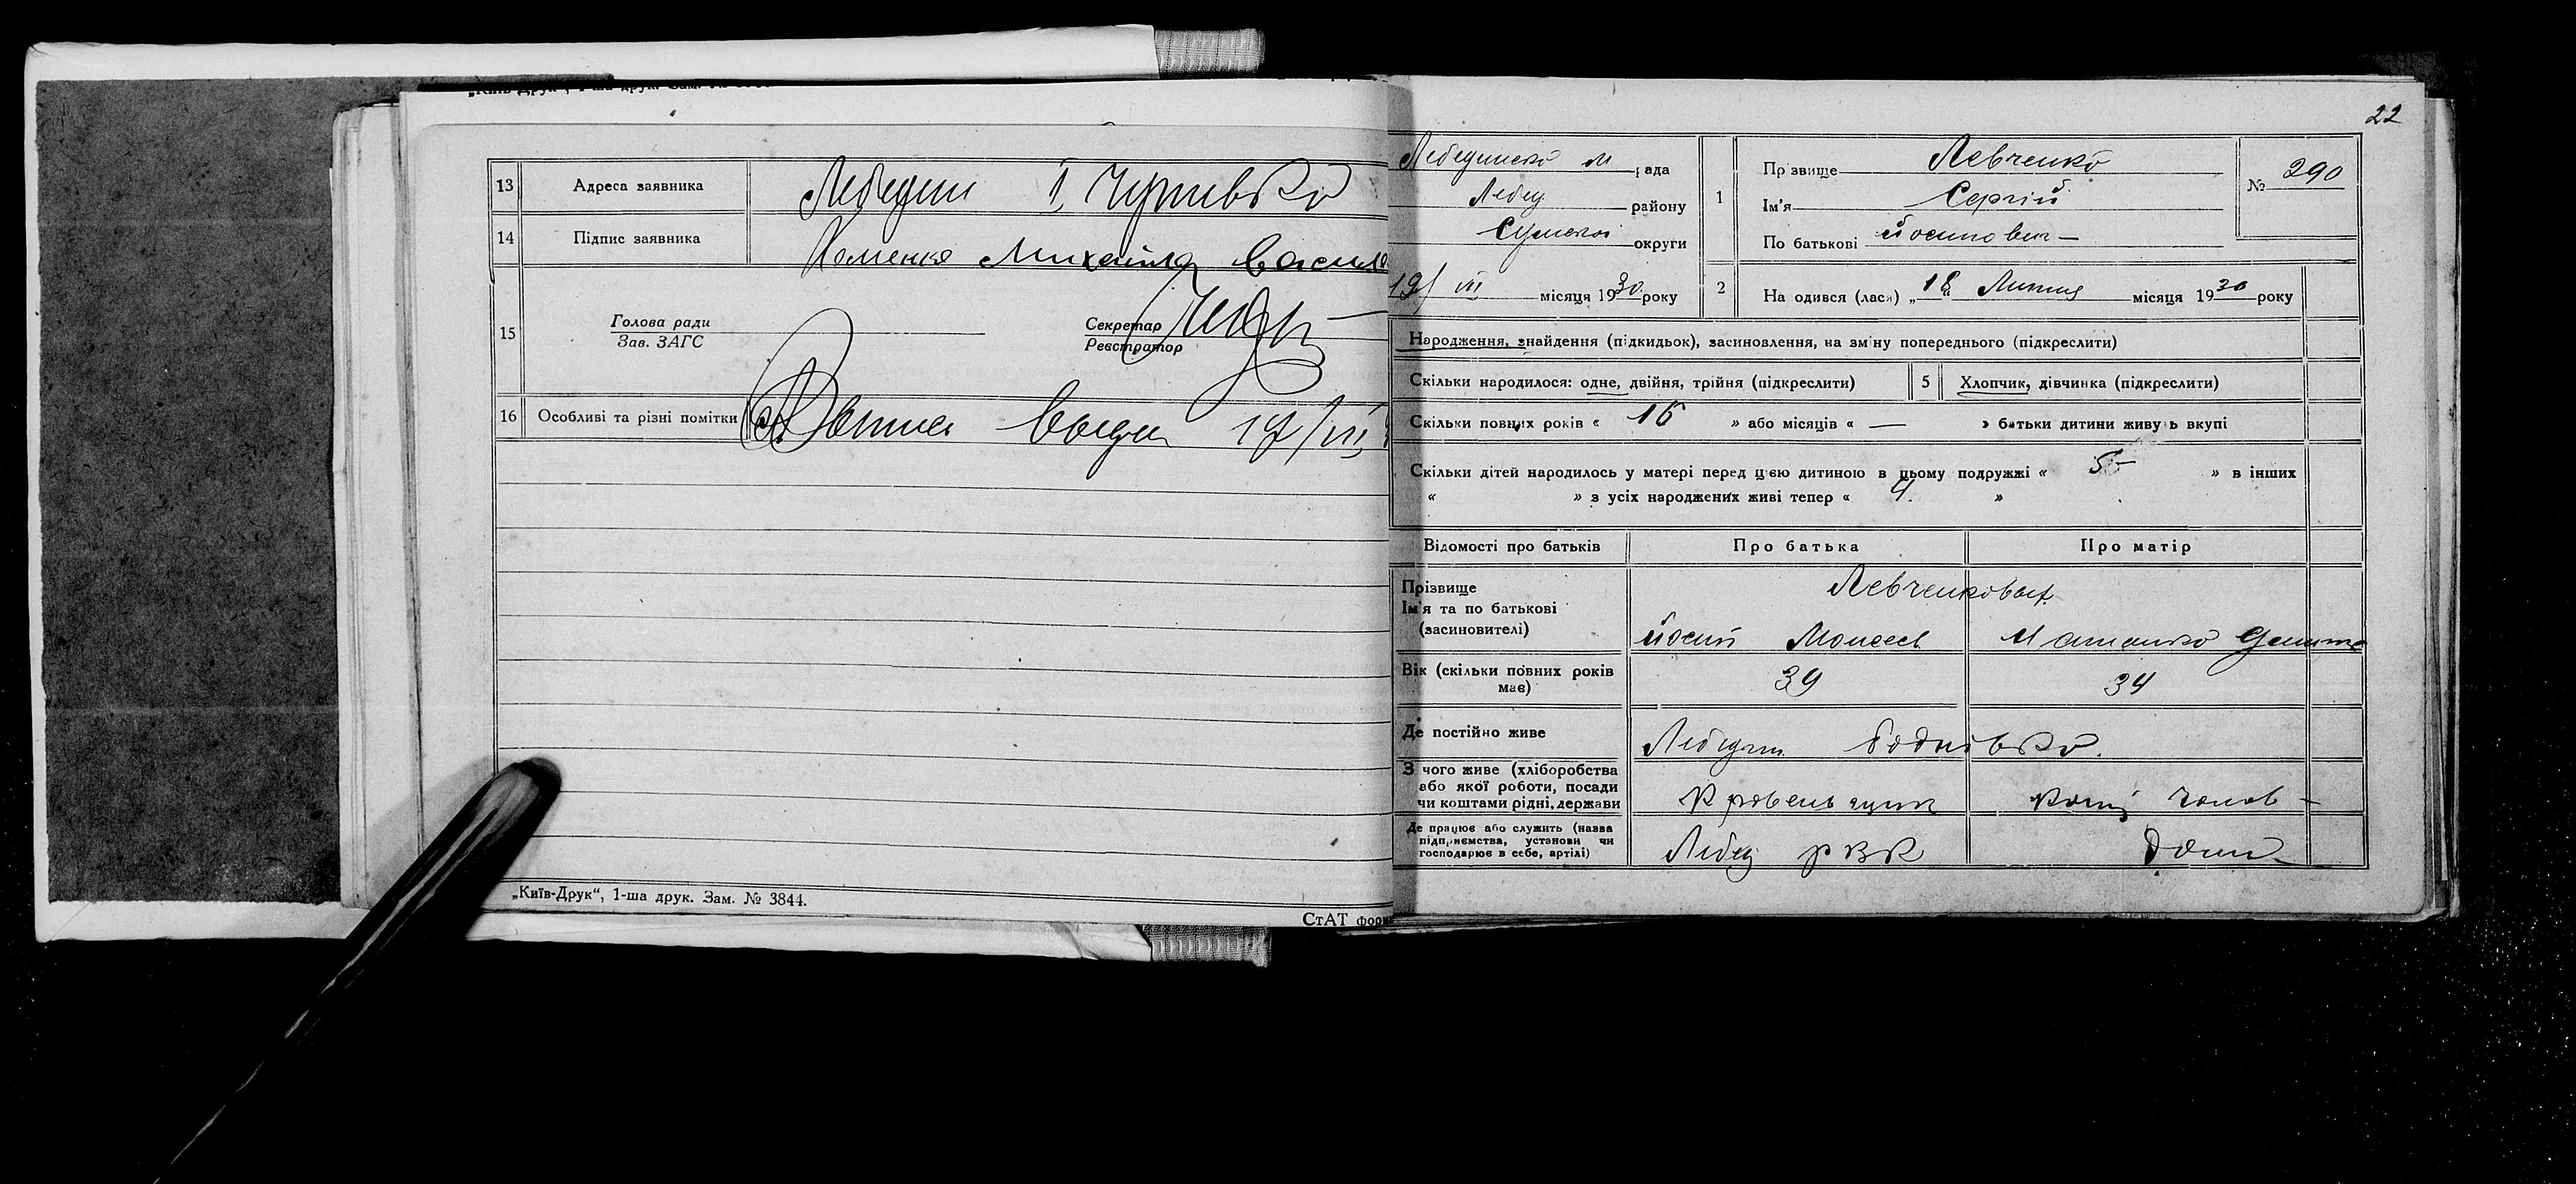 13 Адреса заявника Лебедин І
14 Підпис заявника Хоменко Михайло
15 Голова ради
Зав. ЗАГС
Секретар
Реєстратор
16 Особливі та різні помітки
„Київ-Друк“, 1-ша друк. Зам. № 3844.
СтАТ форм
22
рада
Лебед району
Сумской округи
19/VII місяця 1930 року
1 Прізвище Левченко
Ім'я Сергій
По батькові Йосипович
№ 290
2 Народився (лася) „18“ Липня місяця 1930 року
Народження, знайдення (підкидьок), засиновлення, на зміну попереднього (підкреслити)
Скільки народилося: одне, двійня, трійня (підкреслити) 5 Хлопчик, дівчинка (підкреслити)
Скільки повних років « 16 » або місяців « — » батьки дитини живуть вкупі
Скільки дітей народилось у матері перед цією дитиною в цьому подружжі « 5 » в інших
« » з усіх народжених живі тепер « 4 »
Відомості про батьків Про батька Про матір
Прізвище
Ім'я та по батькові
(засновителі)
Левченковы
Йосип Моисеев
Вік (скільки повних років
має)
39 34
Де постійно живе Лебедин
З чого живе (хліборобства
або якої роботи, посади
чи коштами рідні, держави
Де працює або служить (назва
підприємства, установи чи
господарює в себе, артілі)
Лебед РВК